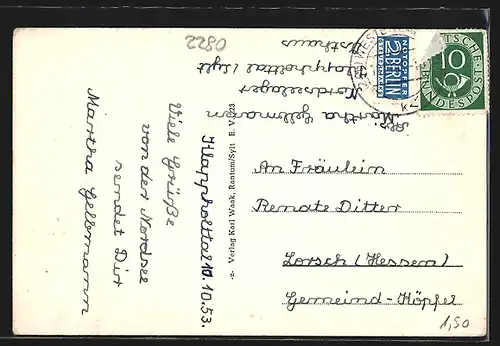 Klappholttal 10.10.53.
Viele Grüße
von der Nordsee
sendet Dir
Martha Gelbmann
Martha Gelbmann
Nordseelager
Klappholttal/Sylt
-a- Verlag Karl Waak, Rantum/Sylt B. V. 223
NOTOPFER
2 BERLIN
STEUERMARKE
10
DEUTSCHE
BUNDESPOST
An Fräulein
Renate Ditter
Lorsch (Hessen)
Gemeind-Köpfel
1,50
0822